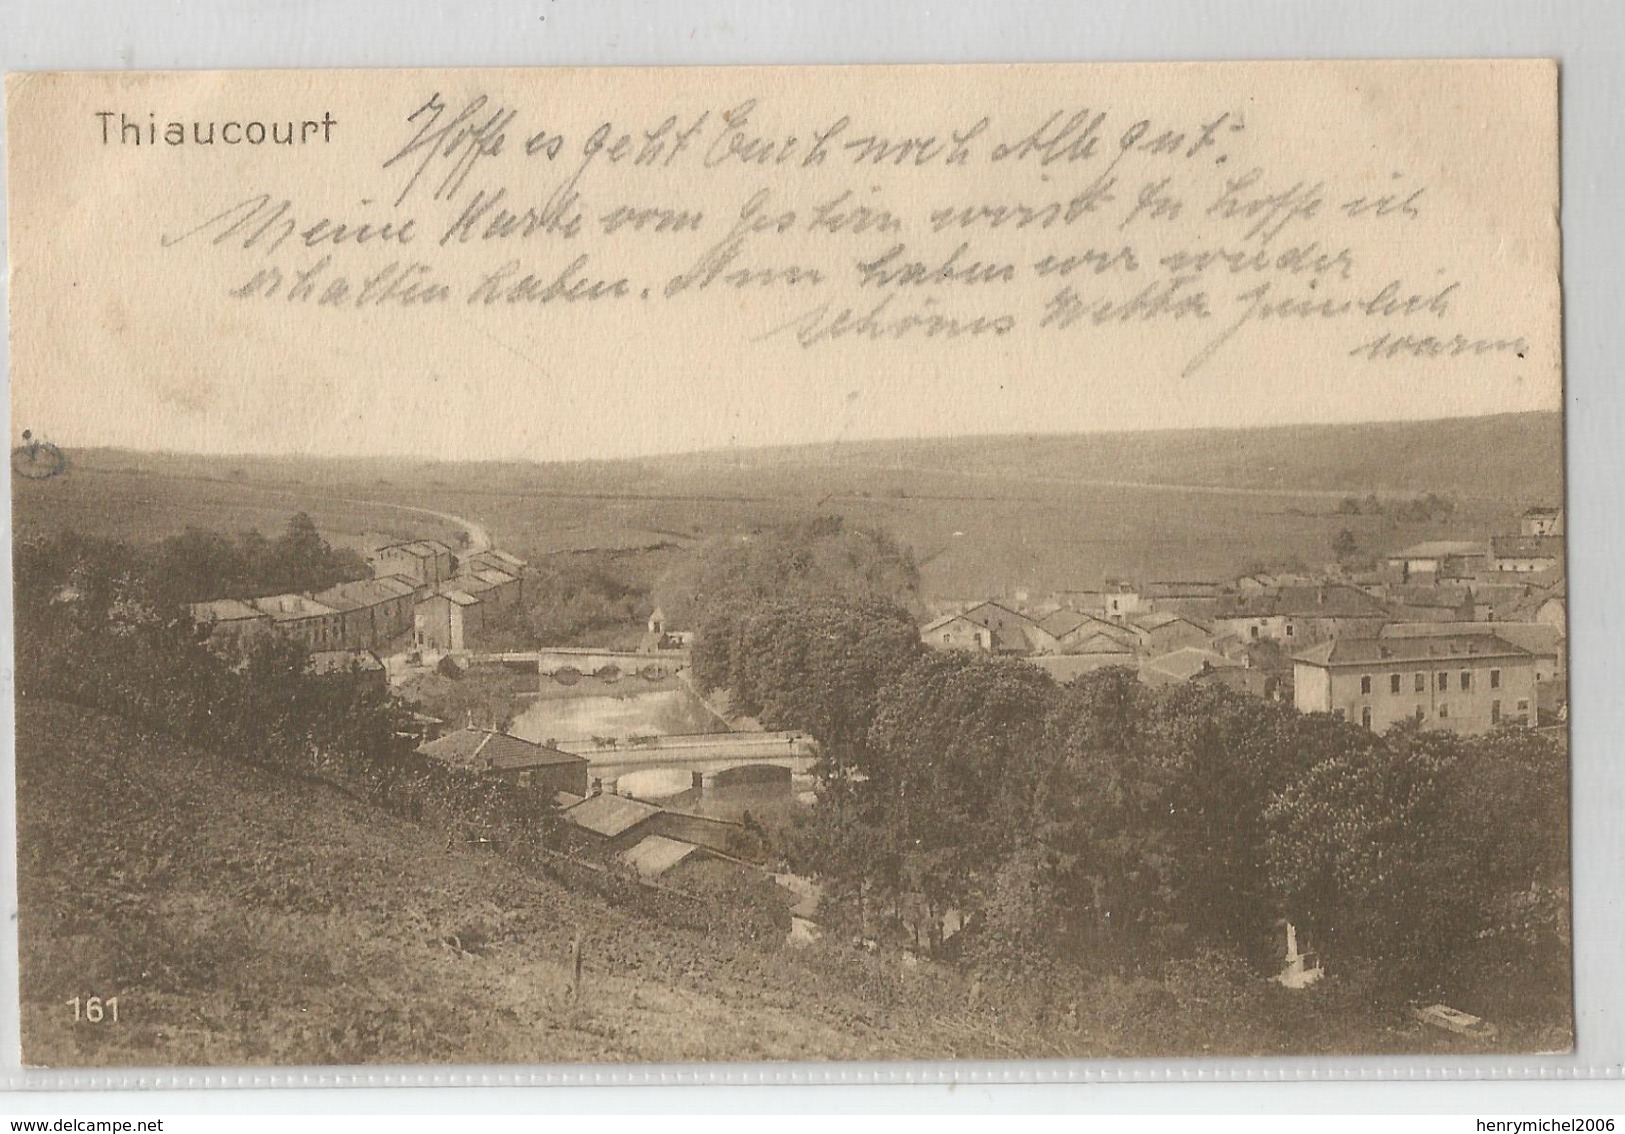 Thiaucourt
Hoffe es geht Euch noch Alle gut.
Meine Karte vom Gestern wirst Du hoffe ich
erhalten haben. Nun haben wir wieder
schönes Wetter ziemlich
warm
161
delcampe.net
henrymichel2006